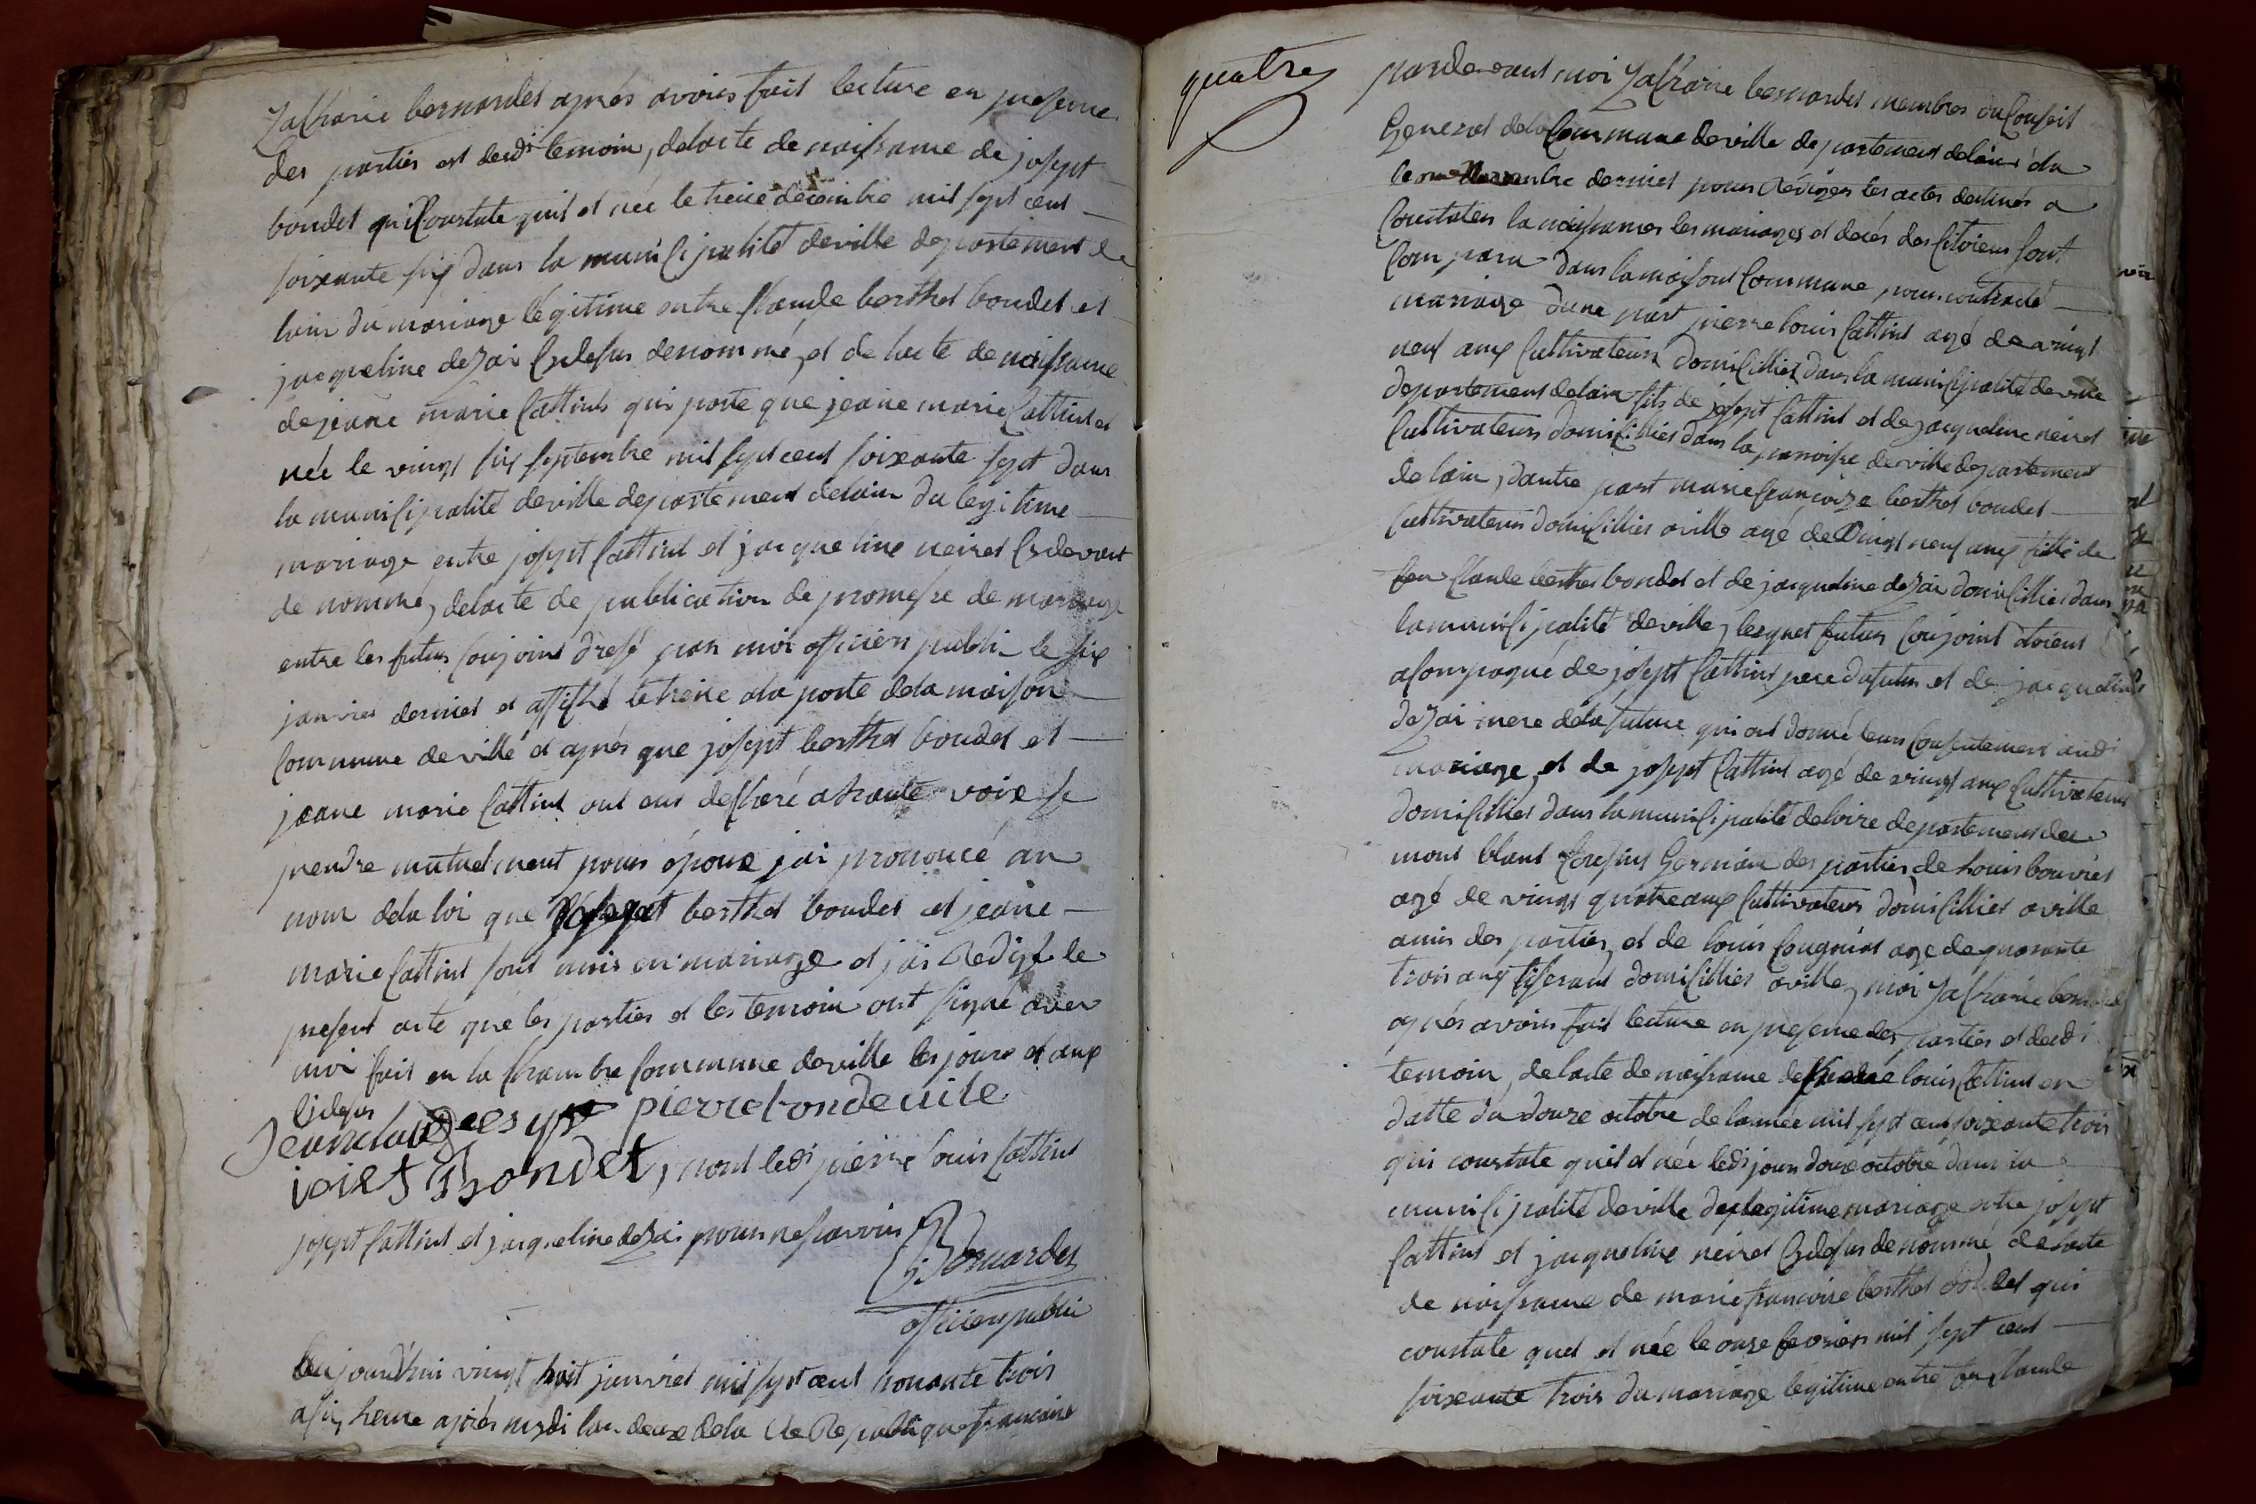 Zacharie bernardet aprés avoir fait lecture en presence
des parties et desdi temoin, delacte de naissance de josept
boudet qui Constate quil et née le treize décembre mil sept cent
soixante six dans la municipalité deville departement de
lain du mariage légitime entre Claude berthet boudet et
jacqueline dezai Cydesus denommé, et de lacte de naissance
de jeane marie Cattint qui porte que jeane marie Cattint et
née le vingt six septembre mil sept cent soixante sept dans
la municipalité deville departement delain du legitime
mariage entre josept Cattint et jacqueline neiret Cydevant
de nommé, delacte de publication de promesse de mariage
entre les futurs Conjoint dressé par moi officier public le six
janvier dernier et affiché le treize ala porte dela maison
Commune deville et aprés que josept berthet boudet et
jeane marie Cattint ont eus desclaré ahaute voix se
prendre mutuelment pour époux jai prononcé au
nom dela loi que josept berthet boudet et jeane
marie Cattint sont unis en mariage et jai Redigé le
present acte que les parties et les temoin ont signé avec
moi fait en la chambre Commune deville les jours et anx
Cidesus
Jeanclaude pierre bondeville
boudet, nont ledi pierre louis Cattint
josept Cattint et jacqueline dezai pour ne savoir
Bernardet
officier public
Aujourdhui vingt huit janvier mil sept cent nonante trois
a six heure aprés midi lan deux dela Republique francaise
quatre
pardevant moi Zacharie bernardet membres du Conseil
General dela Commune deville departement delain élu
le novembre dernier pour Rédiger les actes destinés a
Constater la naissances les mariages et décés des Citoiens sont
Comparu dans la maison Commune pour contracté
mariage dune part pierre louis Cattint agé de vingt
neuf anx Cultivateur domicilliez dans la municipalité deville
departement delain fils de josept Cattint et de jacqueline neiret
Cultivateurs domicilliés dans la paroisse deville departement
de lain, dautre part marie francoize berthet boudet
Cultivateurs domicilliés aville agé de Vingt neuf anx fille de
feu Claude berthet boudet et de jacqueline dezai domicilliés dans
la municipalité deville, lesquet futurs Conjoint étoient
acompagné de josept Cattint pere du futur et de jacqueline
dezai mere dela future qui ont donné leurs Consentement audi
mariage, et de josept Cattint agé de vingt anx Cultivateur
domicilliés dans la municipalité deloire departement du
mont blanc Cousint Germain des parties, de louis bouvier
agé de vingt quatre anx Cultivateur domicilliés aville
amis des parties, et de louis agé de quarante
trois anx tiserant domicilliés aville, moi Zacharie bernardet
aprés avoir fait lecture en presence des parties et desdi
temoin, de lacte de naissance de louis Cattint en
datte du douze octobre de lannée mil sept cent soixante trois
qui constate quil et née ledi jour douze octobre dans la
municipalité deville du legitime mariage entre josept
Cattint et jacqueline neiret Cydesus denommé, de lacte
de naissance de marie francoise berthet boudet qui
constate quel et née le onze fevrier mil sept cent
soixante trois du mariage legitime entre feu Claude